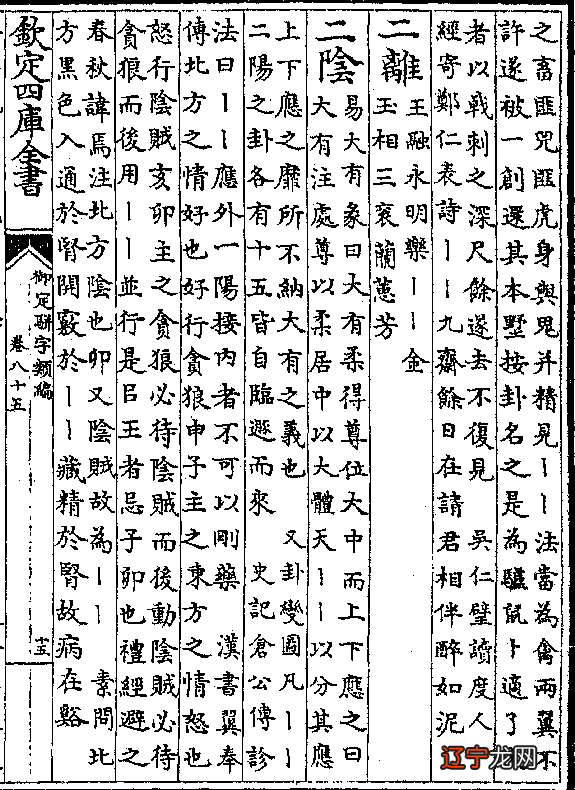 之畜匪兕匪虎身與鬼并精見丨丨法當為禽兩翼不
許遂被一創還其本墅按卦名之是為驢䑕卜適了
者以戰刺之深尺餘遂去不復見 吳仁璧讀度人
經寄鄭仁表詩丨丨九齋餘日在請君相伴醉如泥
二離 王融永明樂丨丨金
玉相三袞蘭蕙芳
二陰 易大有彖曰大有柔得尊位大中而上下應之曰
大有注處尊以柔居中以大體天丨丨以分其應
上下應之靡所不納大有之義也 又卦變圖凡丨丨
二陽之卦各有十五皆自臨遯而來 史記倉公傳診
法曰丨丨應外一陽接内者不可以剛藥 漢書翼奉
傳北方之情好也好行貪狼申子主之東方之情怒也
怒行陰賊亥卯主之貪狼必待陰賊而後動陰賊必待
貪狼而後用丨丨並行是㠯王者忌子卯也禮經避之
春秋諱焉注北方陰也卯又陰賊故為丨丨 素問北
方黑色入通於腎開竅於丨丨藏精於腎故病在谿
欽定四庫全書
御定駢字類編
卷八十五
十五
辽宁龙网